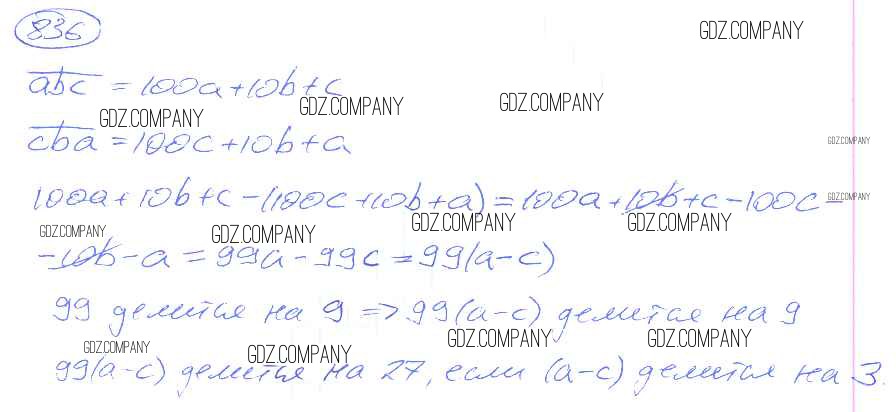 836
GDZ.COMPANY
abc = 100a+10b+c
GDZ.COMPANY GDZ.COMPANY GDZ.COMPANY
cba = 100c+10b+a
GDZ.COMPANY
100a+10b+c-(100c+10b+a)=100a+10b+c-100c-
GDZ.COMPANY
GDZ.COMPANY GDZ.COMPANY GDZ.COMPANY GDZ.COMPANY
-10b-a=99a-99c=99(a-c)
99 делится на 9 => 99(a-c) делится на 9
GDZ.COMPANY GDZ.COMPANY GDZ.COMPANY GDZ.COMPANY
99(a-c) делится на 27, если (a-c) делится на 3.